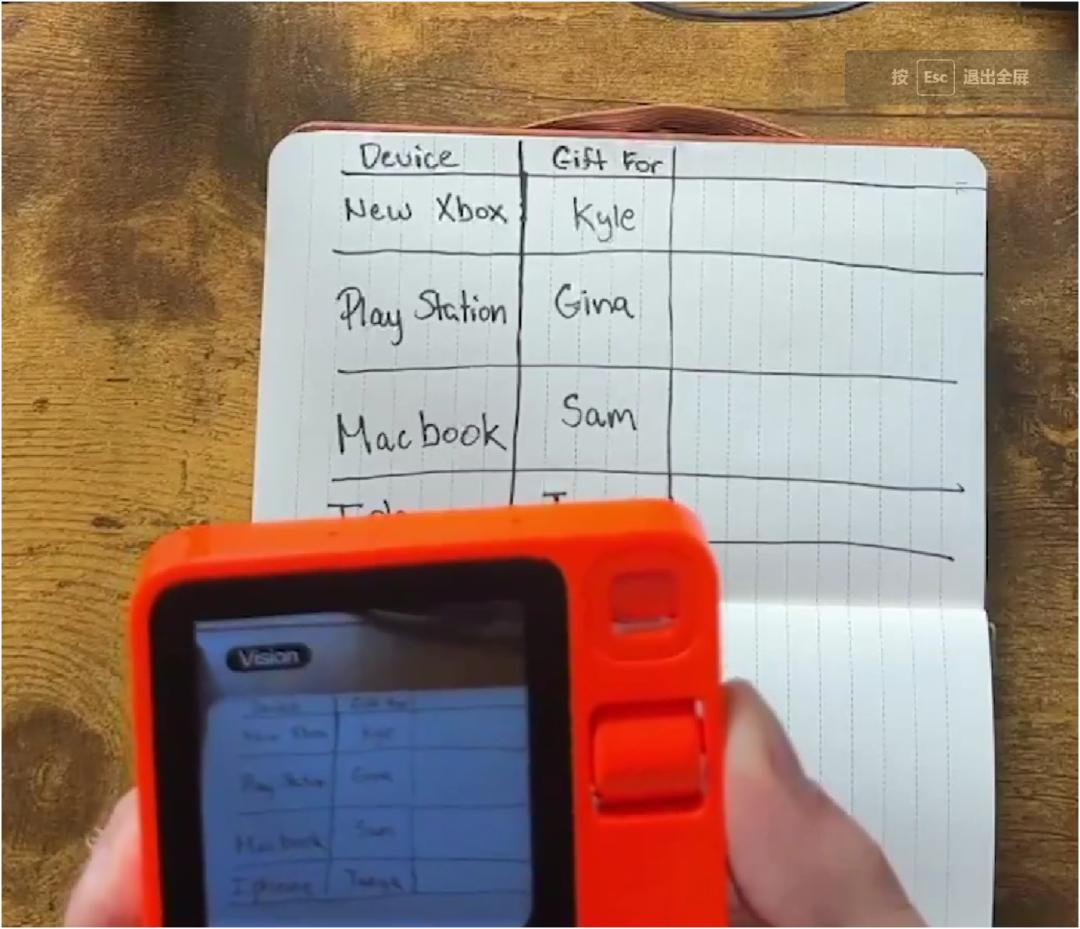 按 Esc 退出全屏
Device Gift For
New Xbox Kyle
Play Station Gina
Macbook Sam
Vision
Device Gift For
New Xbox Kyle
Play Station Gina
Macbook Sam
Iphone